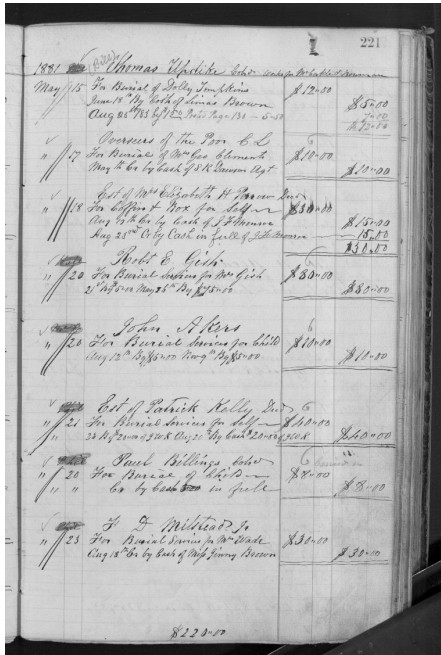 221
1881 Thomas Updike Cold
May 15 For Burial of Dolly Timpkins $12=00
June 18th By Cash of Linias Brown $5=00
Aug 25th 1881 $12=00
Overseers of the Poor C L
" 17 For Burial of Mrs Geo Clements $10=00
May th Cr by Cash of S R Dawson Agt $10=00
Est of Mrs Elizabeth H Decd
" 18 For Coffin & Box for Self $30=00
Aug th Cr by Cash of J F $15=00
Aug 23rd Cr by Cash in full of 15.00
$30.00
Robt E. Gish
" 20 For Burial Services for Mrs Gish $80=00
21st By 5=00 May 28th By $75=00 $80=00
John Akers
" 20 For Burial Services for Child $10=00
Aug 12th By $5=00 Nov 9th By $5=00 $10=00
Est of Patrick Kelly Decd
" 21 For Burial Services for Self $40=00
" " 24 By 20=00 Aug 21st By Cash 20=00 $40=00
Paul Billings Cold
" 20 For Burial of Child $8=00
" " Cr by Cash in full $8=00
F D Milstead Jr
" 23 For Burial Services for Mrs Wade $30=00
Aug 18th Cr by Cash of Miss Jinny Brown $30=00
$220=00